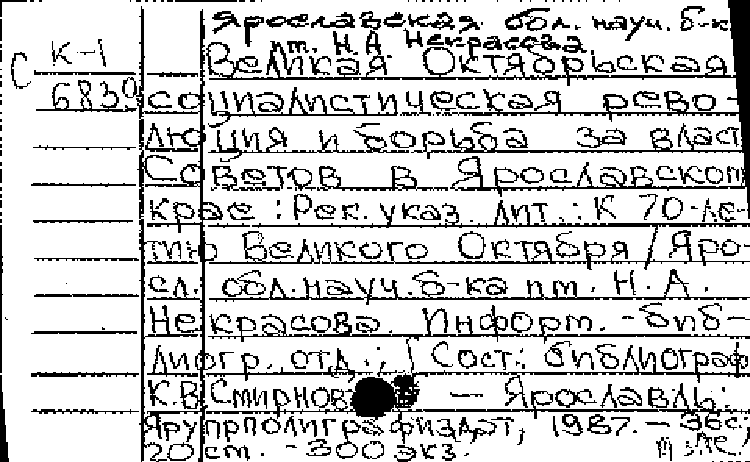 Ярославская обл. науч. б-ка
им. Н.А. Некрасова
С К-1
6839
Великая Октябрьская
социалистическая рево-
люция и борьба за власт
Советов в Ярославском
крае : Рек. указ. лит. : К 70-ле-
тию Великого Октября / Яро-
сл. обл. науч. б-ка им. Н. А.
Некрасова. Информ.-биб-
лиогр. отд.; Сост.: библиограф
К.В. Смирнов — Ярославль:
Ярупрполиграфиздат, 1987. – 36с;
20 см. - 300 экз.